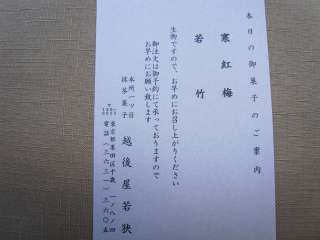 本日の御菓子のご案内
寒紅梅
若竹
生物ですので、お早めにお召し上がりください
御注文は御予約にて承っておりますので
お早めにお願い致します
本所一ツ目
抹茶菓子 越後屋若狭
〒130-0025 東京都墨田区千歳一ノ八ノ四
電話(三六三一)三六〇五